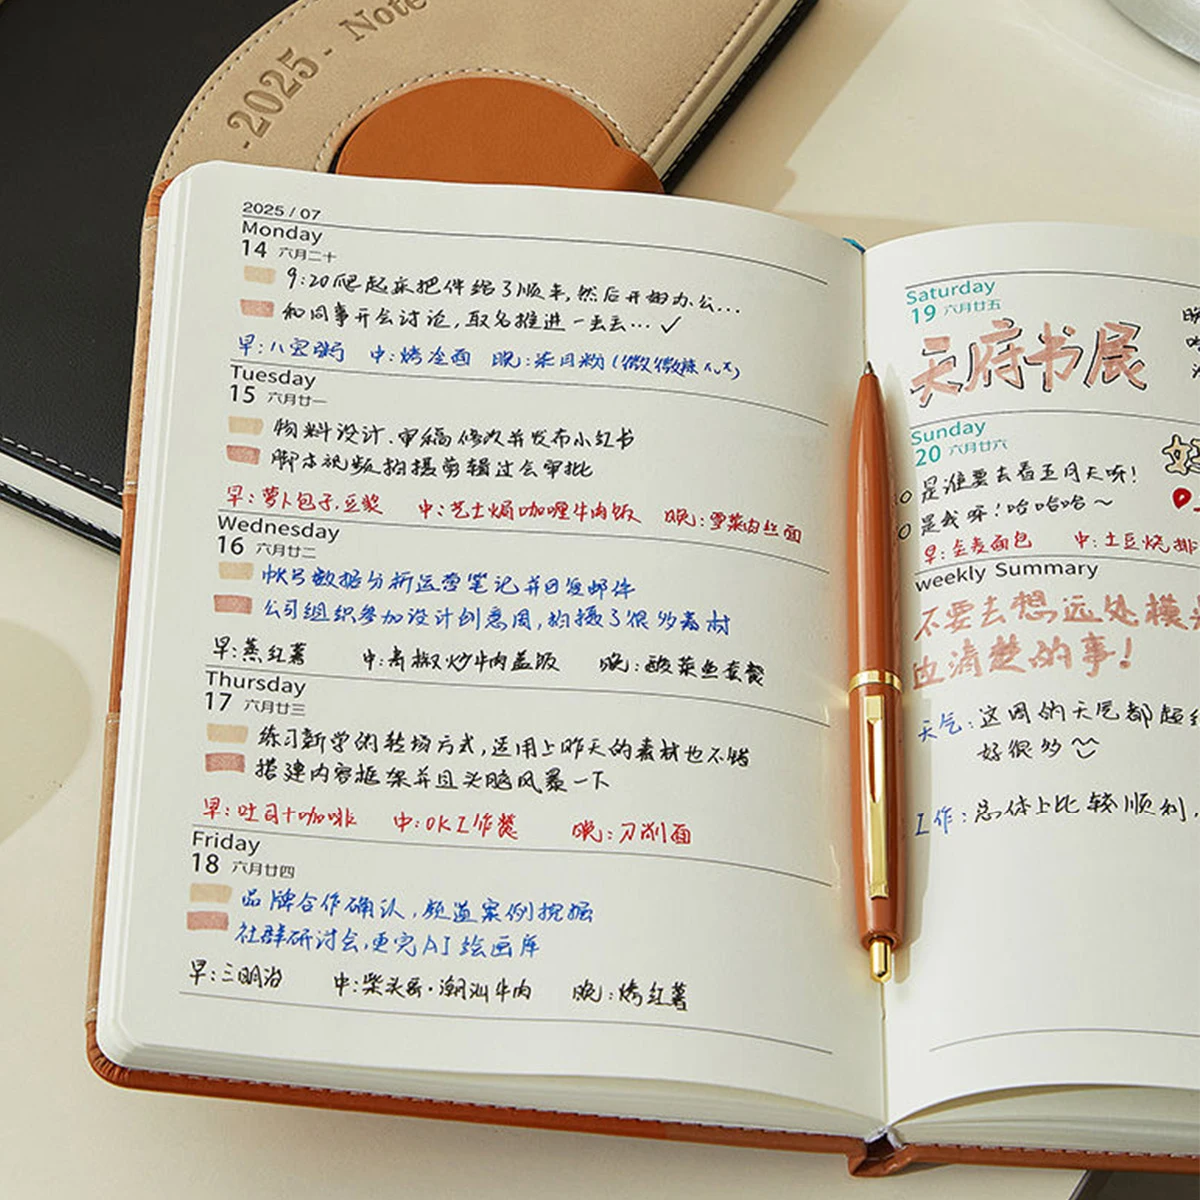 -2025- Note
2025 / 07
Monday
14 六月二十
9:20爬起床把件缩了顺丰,然后开始办公...
和同事开会讨论,取名推进一丢丢... ✓
早:八宝粥 中:烤冷面 晚:柒月粉(微微辣
Tuesday
15 六月廿一
物料设计.审稿修改并发布小红书
脚本视频拍摄剪辑过会审批
早:萝卜包子.豆浆 中:芝士焗咖喱牛肉饭 晚:雪菜肉丝面
Wednesday
16 六月廿二
帐号数据分析运营笔记并回复邮件
公司组织参加设计创意周,拍摄了很多素材
早:蒸红薯 中:青椒炒牛肉盖饭 晚:酸菜鱼套餐
Thursday
17 六月廿三
练习新学的转场方式,运用上昨天的素材也不错
搭建内容框架并且头脑风暴一下
早:吐司+咖啡 中:OK工作餐 晚:刀削面
Friday
18 六月廿四
品牌合作确认,频道案例挖掘
社群研讨会,更完AI绘画库
早:三明治 中:柴头香·潮汕牛肉 晚:烤红薯
Saturday
19 六月廿五
天府书展
晚
Sunday
20 六月廿六
是谁要去看五月天呀!
是我嘛!哈哈哈~
早:全麦面包 中:土豆烧排
weekly Summary
不要去想远处模
血清楚的事!
天气:这周的天气都超级
好很多
工作:总体上比较顺利,